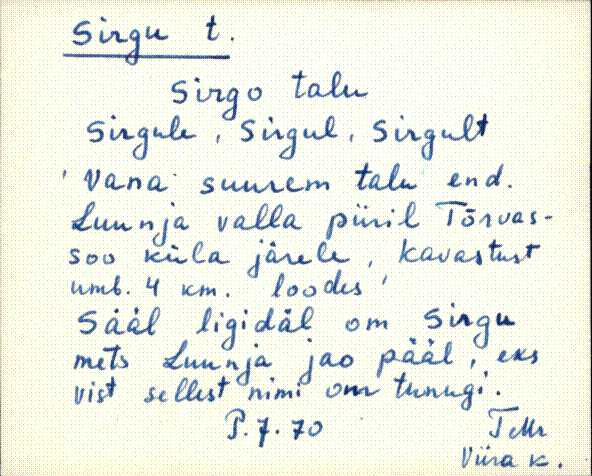 Sirgu t.
Sirgo talu
Sirgule, Sirgul, Sirgult
'Vana suurem talu end.
Luunja valla piiril Tõrvas-
soo küla järele, Kavastust
umb. 4 km. loodes'
Sääl ligidäl om Sirgu
mets Luunja jao pääl, eks
vist sellest nimi om tunugi.
P.7.70
Viira k.